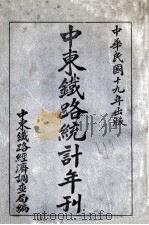 中華民國十九年出版
中東鐵路統計年刊
中東鐵路經濟調查局編